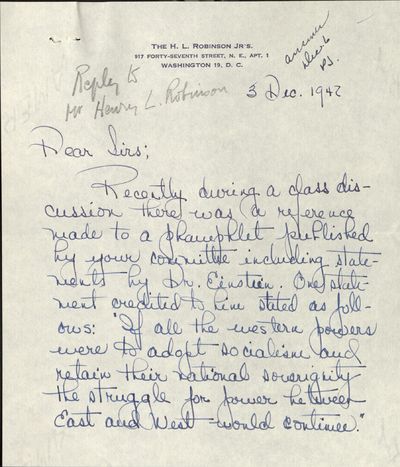 THE H. L. ROBINSON JR'S.
917 FORTY-SEVENTH STREET, N. E., APT. 1
WASHINGTON 19, D. C.
answer
Dec. 6
Reply to
Mr Henry L. Robinson
3 Dec. 1947
Dear Sirs;
Recently during a class dis-
cussion there was a reference
made to a phamphlet published
by your committe including state-
ments by Dr. Einstien. One state-
ment credited to him stated as foll-
ows: "If all the western powers
were to adopt socialism and
retain their national soverignity
the struggle for power between
East and West would continue."